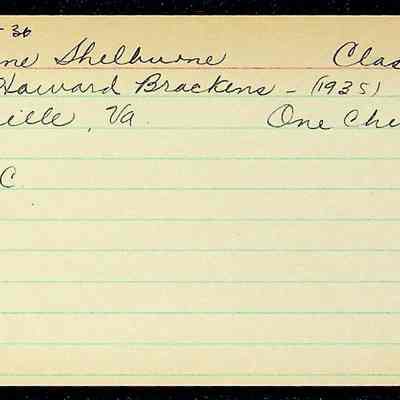 - 36
ne Shelburne Clas
Howard Brackens - (1935)
ille, Va. One Chi
C